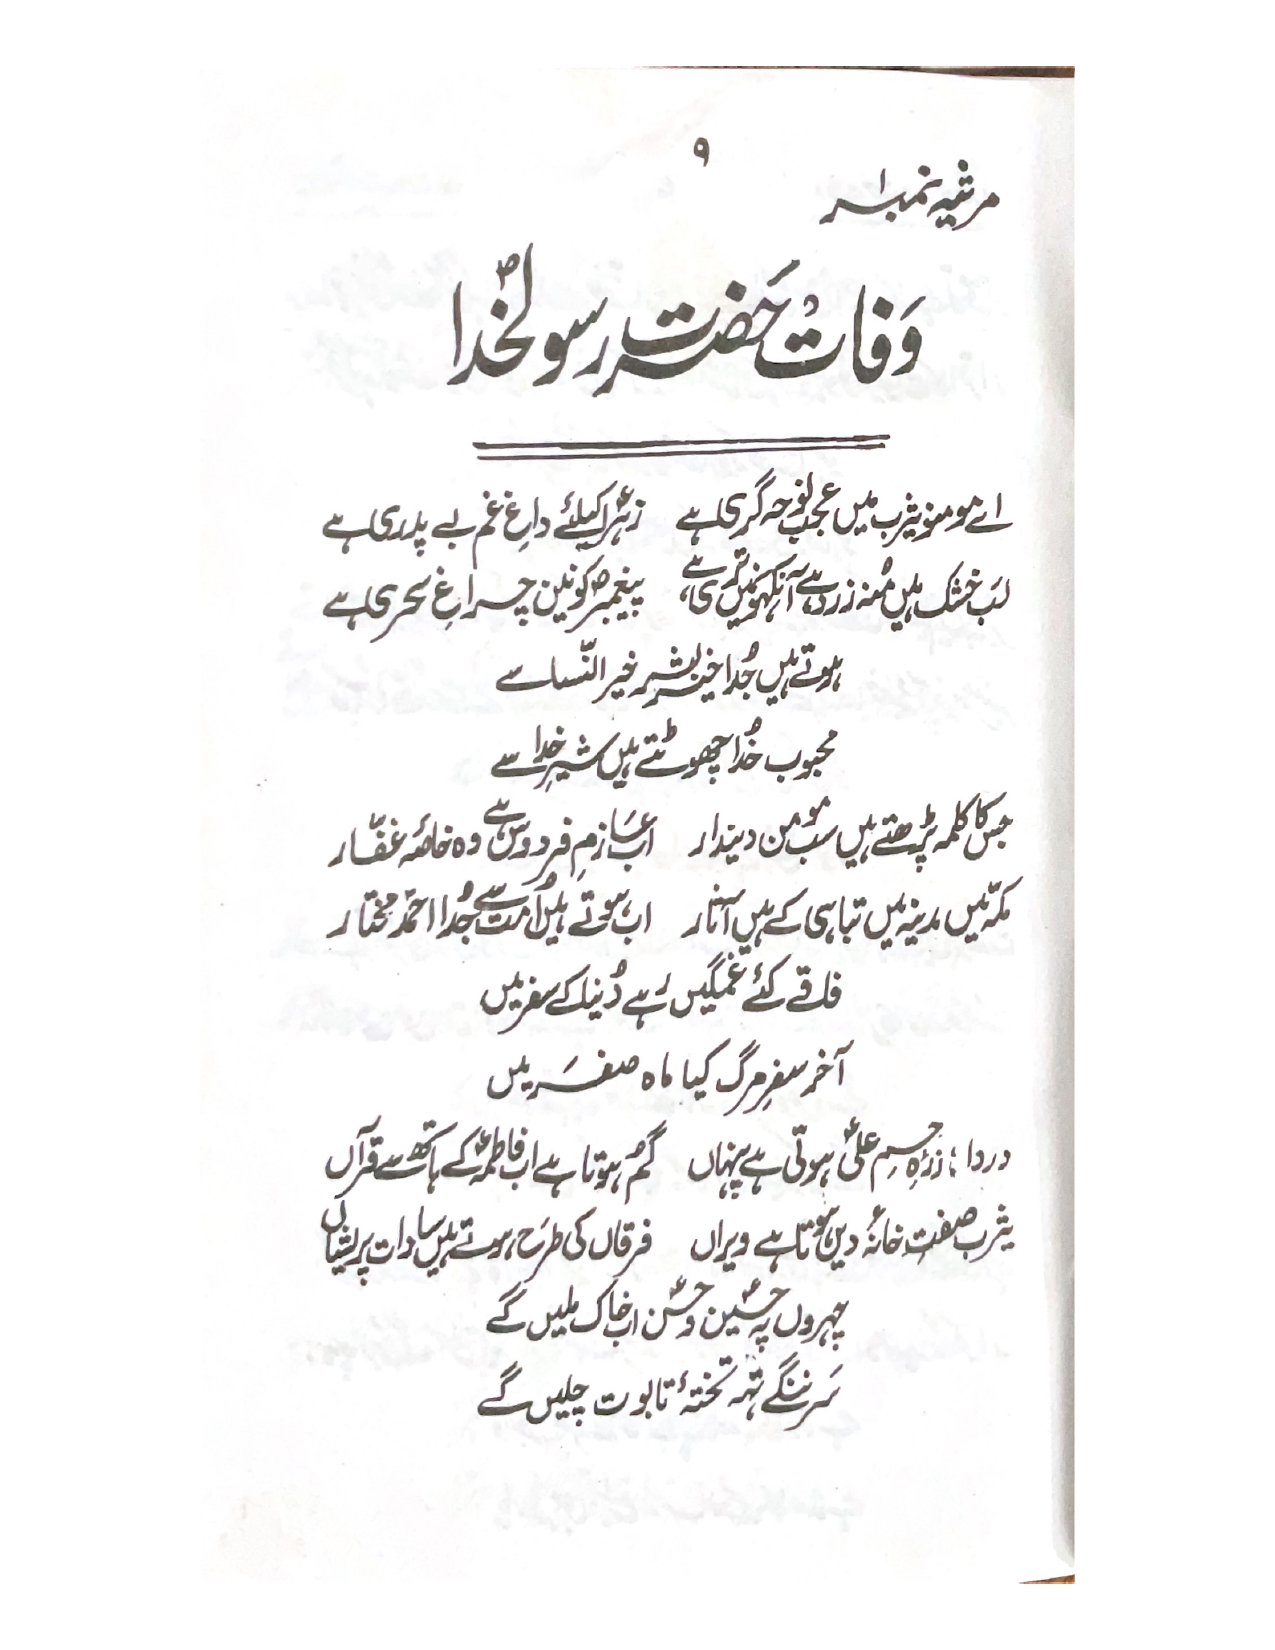 ۹
مرثیہ نمبر ۱
وفات حضرت رسولخداؐ
اے مومنو یثرب میں عجب نوحہ گری ہے زہراؑ کیلئے داغِ غم بے پدری ہے
لب خشک ہیں منہ زرد ہے آنکھوں میں تری ہے پیغمبرؐ کونین چراغِ سحری ہے
ہوتے ہیں جُدا خیر بشر خیر النّسا سے
محبوب خُدا چھوٹتے ہیں شیرِ خدا سے
جس کا کلمہ پڑھتے ہیں سب مومن دیندار اب عازمِ فردوس ہے وہ خاصۂ غفّار
مکّہ میں مدینہ میں تباہی کے ہیں آثار اب ہوتے ہیں اُمت سے جُدا احمّد مختار
فاقے کئے غمگیں رہے دُنیا کے سفر میں
آخر سفرِ مرگ کیا ماہ صفَر میں
دردا ؛ زرہِ جسم علیؑ ہوتی ہے پنہاں گم ہوتا ہے اب فاطمہؑ کے ہاتھ سے قرآں
یثرب صفت خانۂ دیں ہوتا ہے ویراں فرقاں کی طرَح ہوتے ہیں سادات پریشاں
چہروں پہ حسینؑ و حسنؑ اب خاک ملیں گے
سَر ننگے تہہ تختۂ تابوت چلیں گے